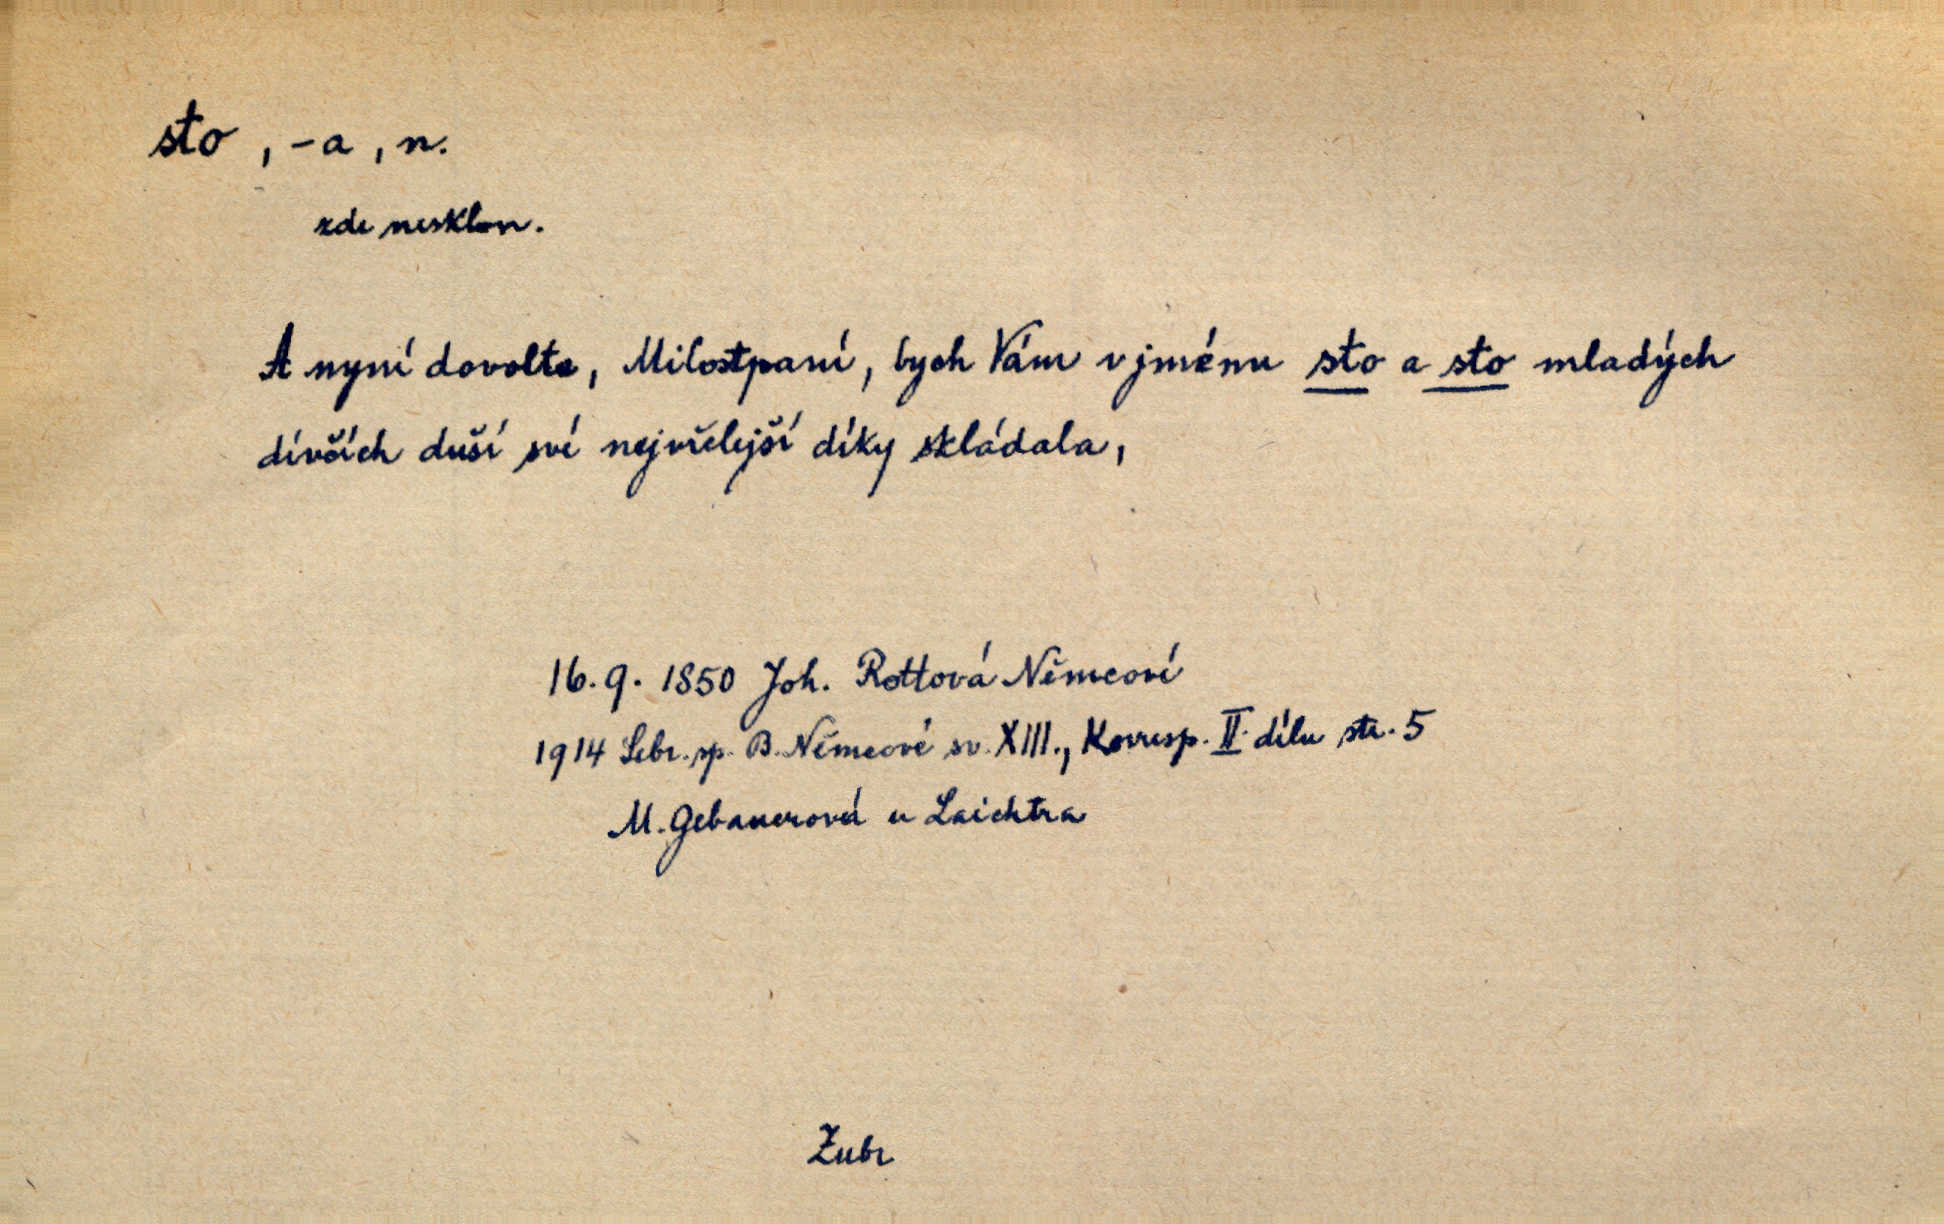 sto, -a, n.
zde nesklon.
A nyní dovolte, Milostpaní, bych Vám v jménu sto a sto mladých
dívčích duší své nejvřelejší díky skládala,
16. 9. 1850 Joh. Rottová Němcové
1914 Sebr. sp. B. Němcové sv. XIII., Korresp. II. dílu str. 5
M. Gebauerová u Laichtra
Zubr